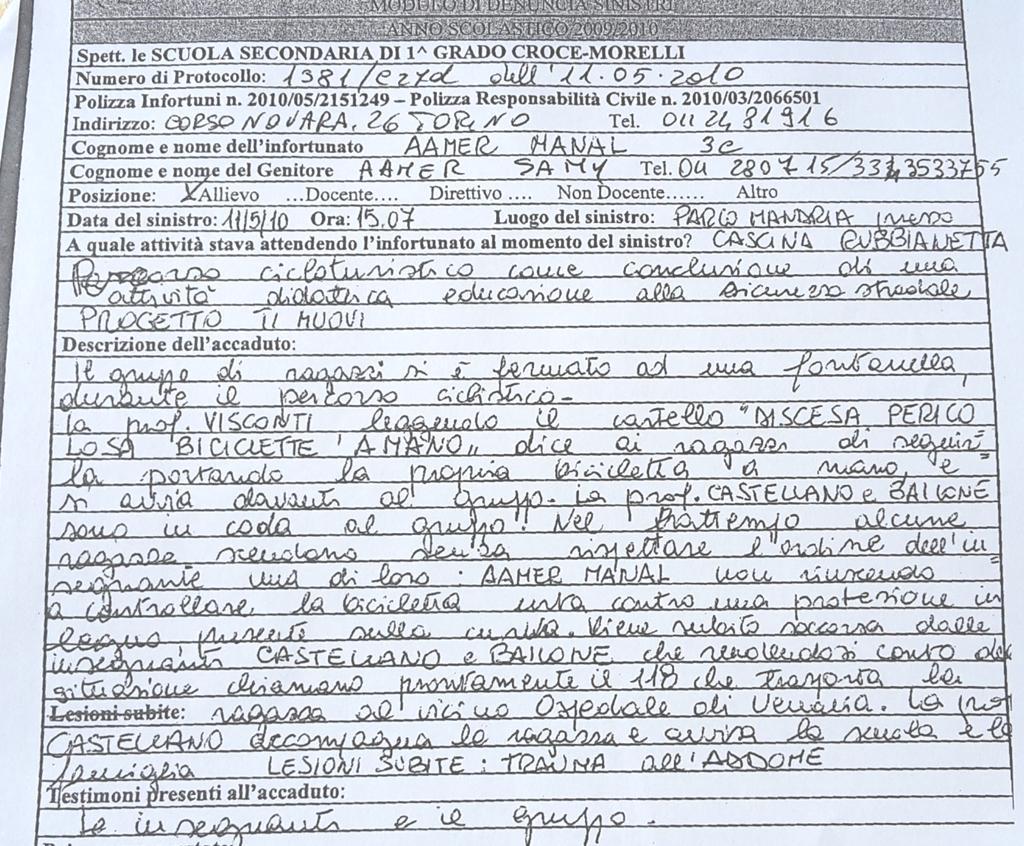 MODULO DI DENUNCIA SINISTRI
ANNO SCOLASTICO 2009/2010
Spett. le SCUOLA SECONDARIA DI 1^ GRADO CROCE-MORELLI
Numero di Protocollo: 1381/ dell'11.05.2010
Polizza Infortuni n. 2010/05/2151249 – Polizza Responsabilità Civile n. 2010/03/2066501
Indirizzo: CORSO NOVARA, 26 TORINO Tel. 011 2481916
Cognome e nome dell'infortunato AAMER MANAL 3C
Cognome e nome del Genitore AAMER SAMY Tel. 011 280715/334 3533755
Posizione: X Allievo ...Docente.... Direttivo ... Non Docente...... Altro
Data del sinistro: 11/5/10 Ora: 15.07 Luogo del sinistro: PARCO MANDRIA
A quale attività stava attendendo l'infortunato al momento del sinistro? CASCINA RUBBIANETTA
Percorso cicloturistico come conclusione di una
attività didattica educazione alla sicurezza stradale
PROGETTO TI MUOVI
Descrizione dell'accaduto:
Il gruppo di ragazzi si è fermato ad una fontanella,
durante il percorso ciclistico-
la prof. VISCONTI leggendo il cartello "DISCESA PERICO
LOSA BICICLETTE A MANO" dice ai ragazzi di seguir=
la portando la propria bicicletta a mano, e
si avvia davanti al gruppo. La prof. CASTELLANO e BAILONE
sono in coda al gruppo. Nel frattempo alcune
ragazze scendono senza rispettare l'ordine dell'in=
segnante una di loro: AAMER MANAL non riuscendo
a controllare la bicicletta urta contro una protezione in
legno presente sulla curva. Viene subito soccorsa dalle
insegnanti CASTELLANO e BAILONE che rendendosi conto della
situazione chiamano prontamente il 118 che trasporta la
Lesioni subite: ragazza al vicino Ospedale di Venaria. La prof
CASTELLANO accompagna la ragazza e avvisa la scuola e la
famiglia LESIONI SUBITE: TRAUMA all'ADDOME
Testimoni presenti all'accaduto:
Le insegnanti e il gruppo.